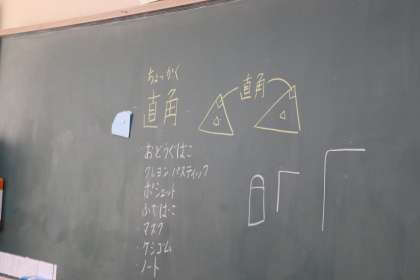 ちょっかく
直角
直角
おどうぐばこ
クレヨン パスティック
ポシェット
ふでばこ
マスク
ケシゴム
ノート